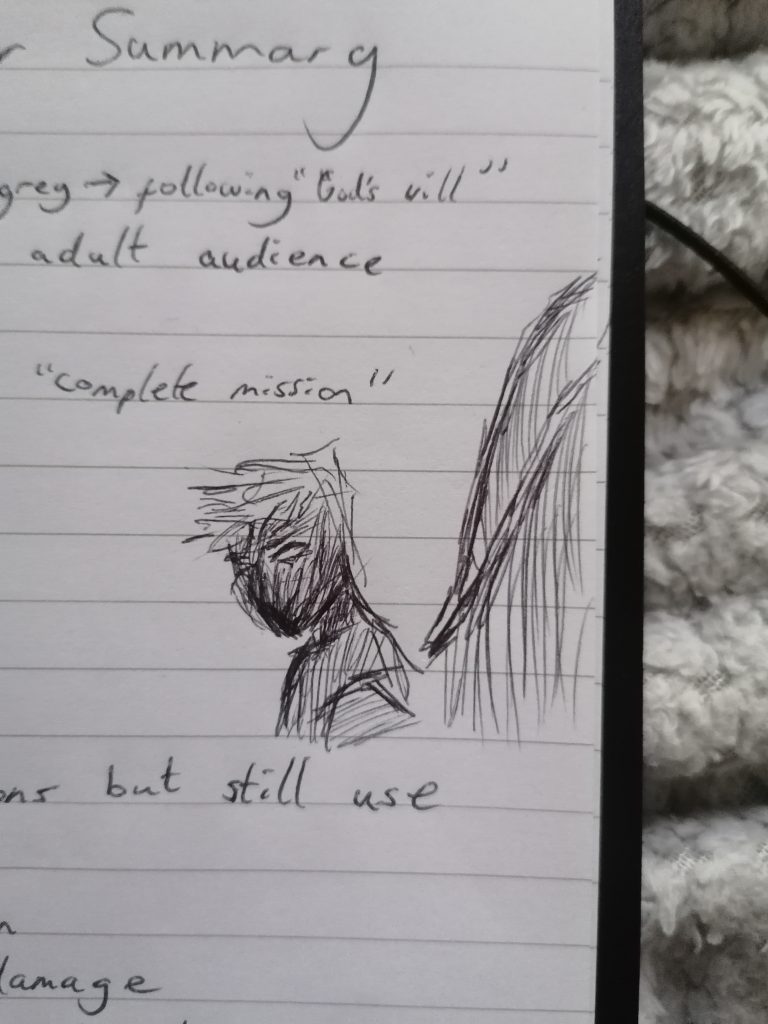 r Summary
grey → following "God's will"
adult audience
"complete mission"
ons but still use
n
damage